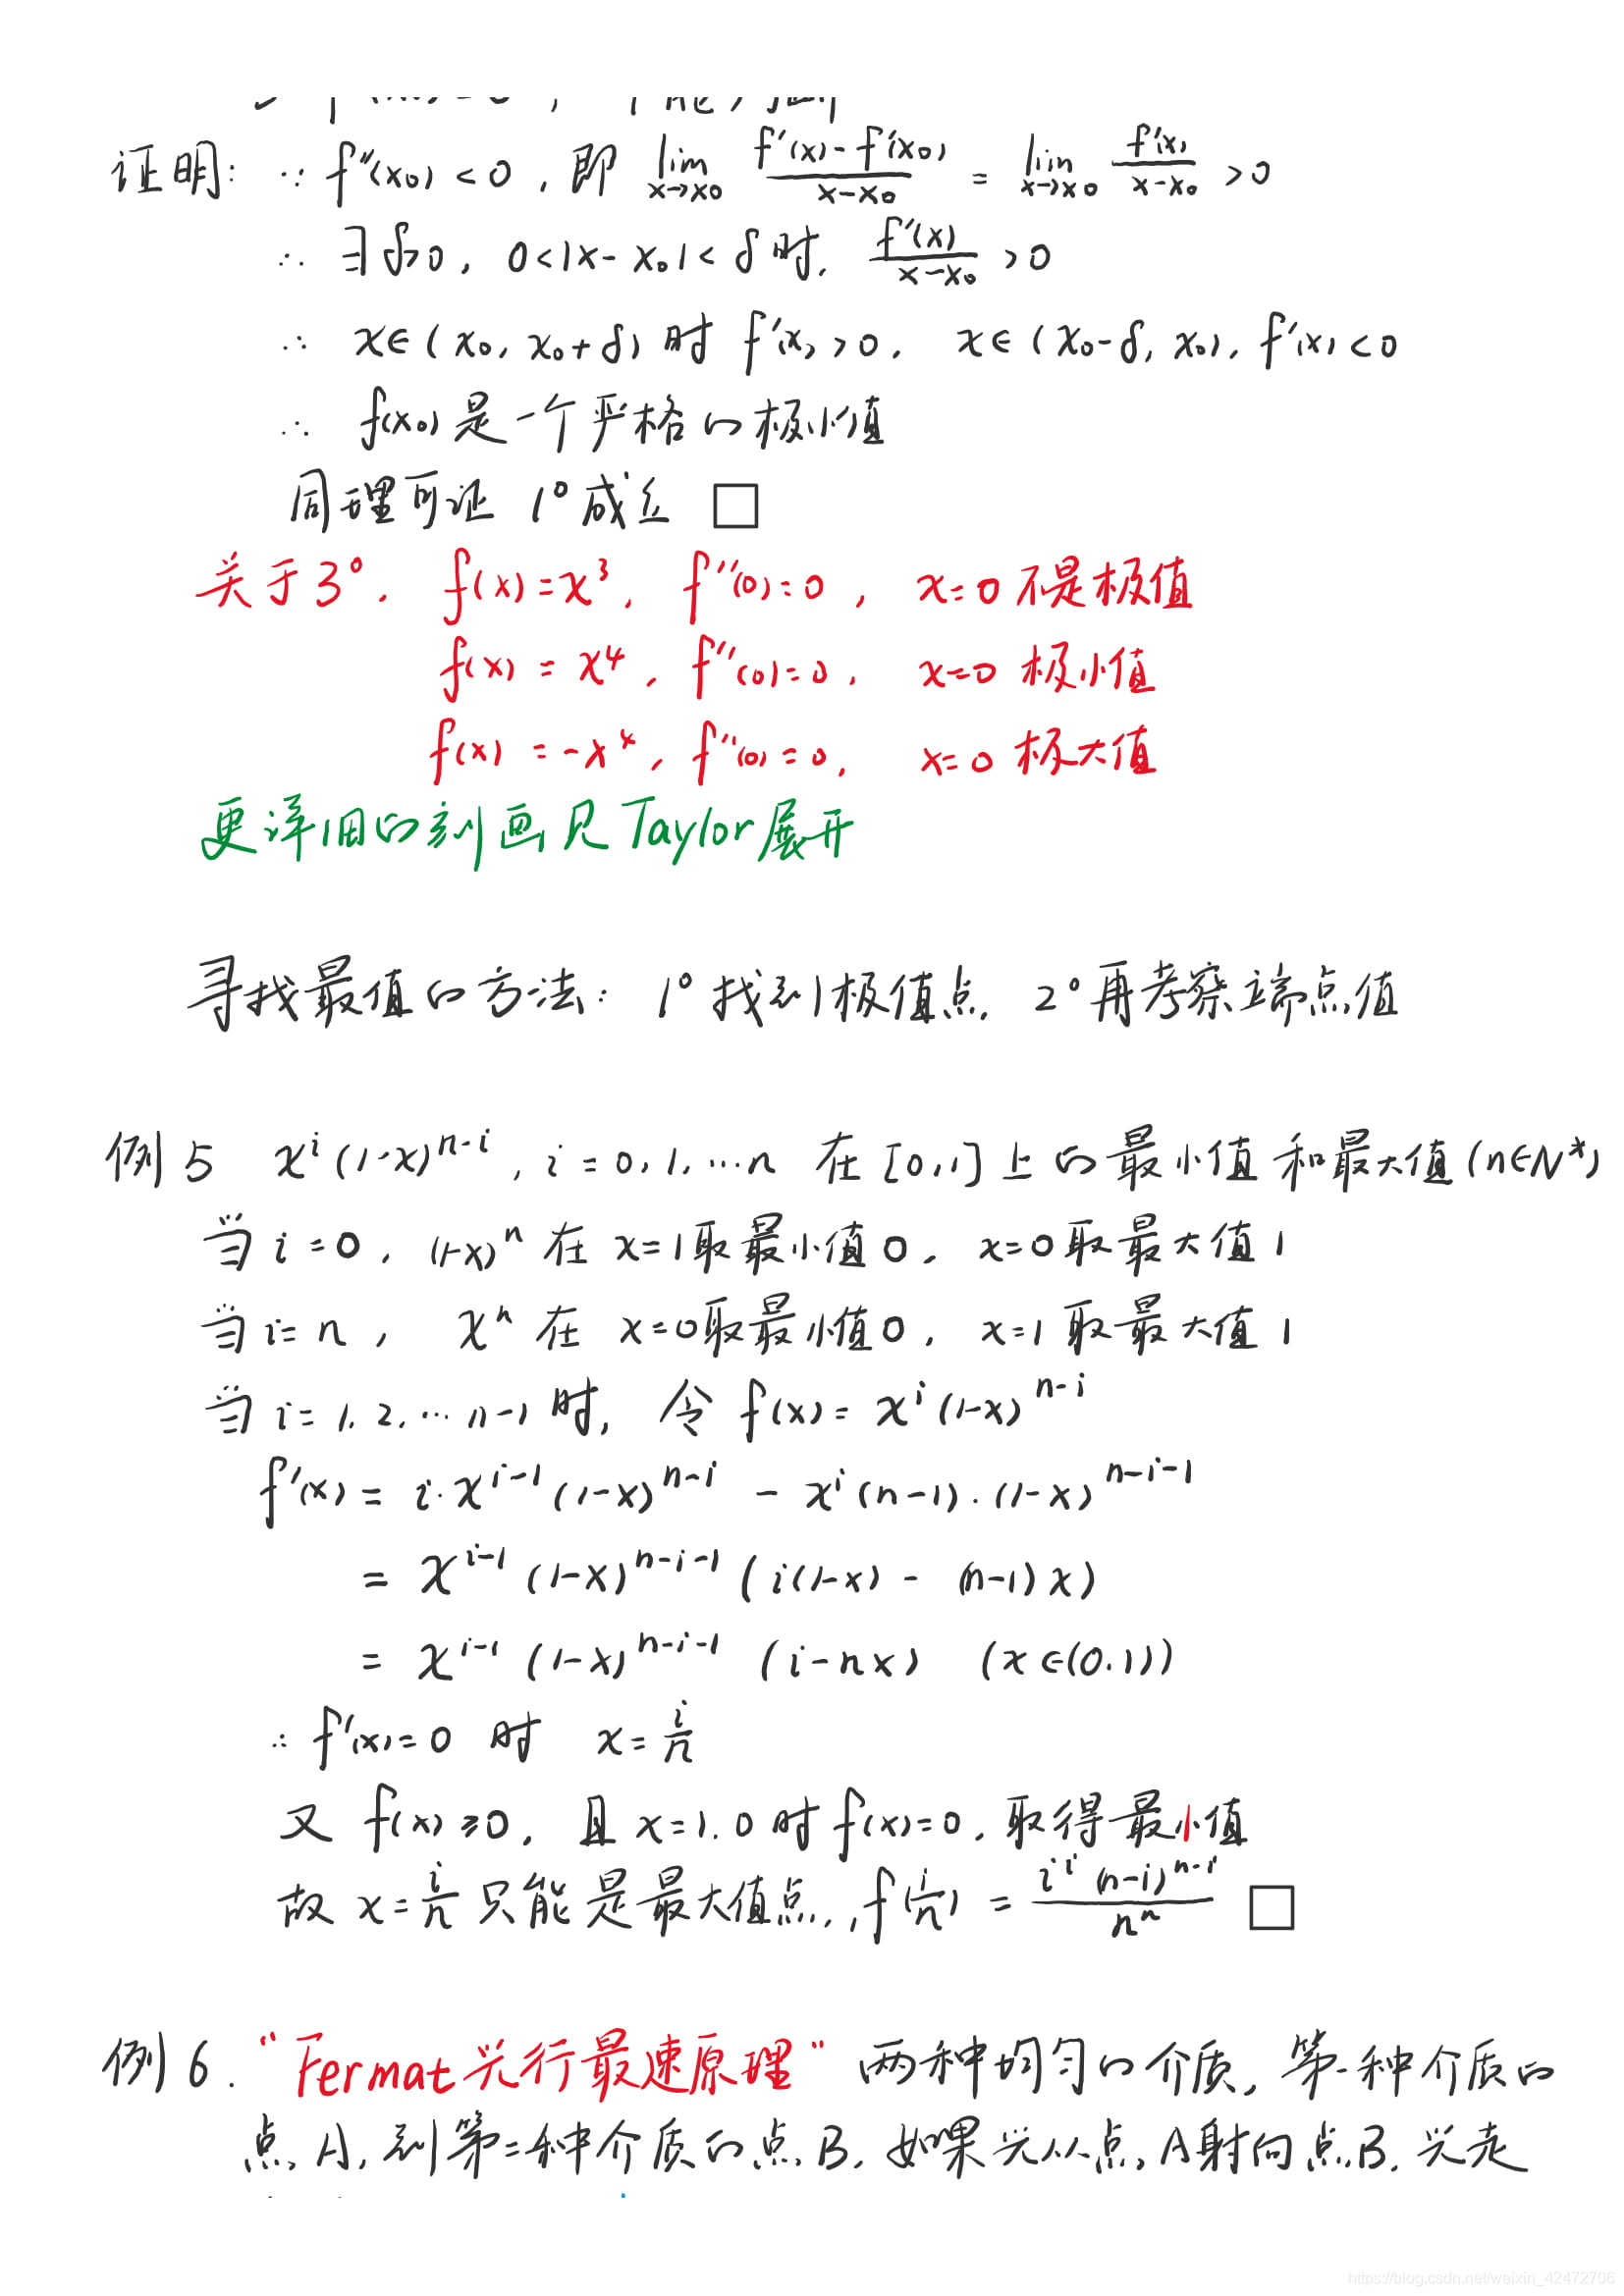 证明: ∵ f''(x₀) < 0 , 即 lim_{x→x₀} (f'(x) - f'(x₀))/(x - x₀) = lim_{x→x₀} f'(x)/(x - x₀) > 0
∴ ∃ δ>0 , 0<|x - x₀|< δ 时, f'(x)/(x - x₀) > 0
∴ x∈( x₀, x₀+δ) 时 f'(x) > 0 , x∈(x₀-δ, x₀), f'(x) < 0
∴ f(x₀) 是一个严格的极小值
同理可证 1° 成立 □
关于3°, f(x) = x³, f''(0)=0 , x=0 不是极值
f(x) = x⁴, f''(0)=0, x=0 极小值
f(x) = -x⁴, f''(0)=0, x=0 极大值
更详细的刻画见Taylor展开
寻找最值的方法: 1° 找到极值点, 2° 再考察端点值
例5 xⁱ(1-x)ⁿ⁻ⁱ , i = 0, 1, …n 在 [0,1] 上的最小值和最大值 (n∈N*)
当 i = 0 , (1-x)ⁿ 在 x=1取最小值0 , x=0取最大值1
当 i = n , xⁿ 在 x=0取最小值0 , x=1取最大值1
当 i = 1, 2, … n-1 时, 令 f(x) = xⁱ(1-x)ⁿ⁻ⁱ
f'(x) = i·xⁱ⁻¹(1-x)ⁿ⁻ⁱ - xⁱ(n-1)·(1-x)ⁿ⁻ⁱ⁻¹
= xⁱ⁻¹(1-x)ⁿ⁻ⁱ⁻¹( i(1-x) - (n-1)x)
= xⁱ⁻¹(1-x)ⁿ⁻ⁱ⁻¹ (i-nx) (x∈(0,1))
∴ f'(x)=0 时 x = i/n
又 f(x) ≥0, 且 x=1, 0 时 f(x)=0, 取得最小值
故 x = i/n 只能是最大值点, f(i/n) = iⁱ(n-i)ⁿ⁻ⁱ/nⁿ □
例6. "Fermat光行最速原理" 两种均匀的介质, 第一种介质的
点A, 到第二种介质的点B, 如果光从点A射向点B, 光走
https://blog.csdn.net/weixin_42472706